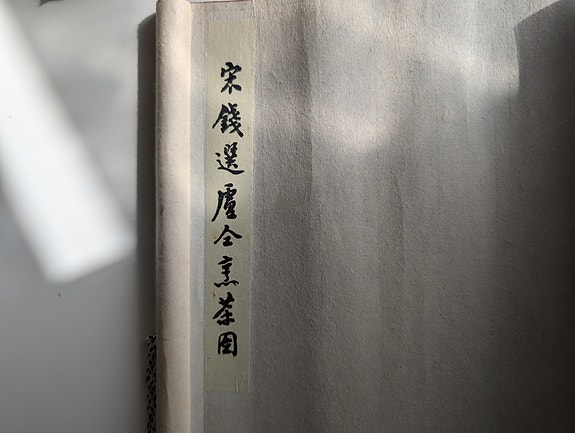 宋錢選盧仝烹茶图